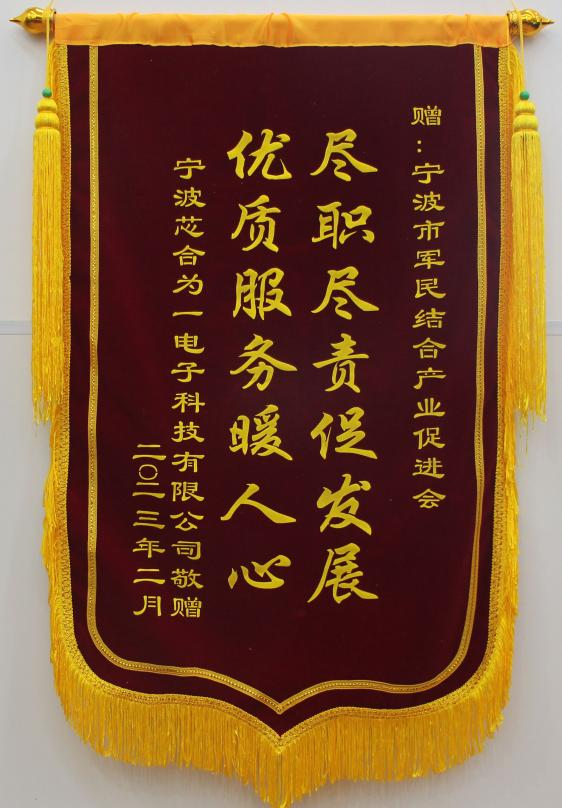 赠：宁波市军民结合产业促进会
尽职尽责促发展
优质服务暖人心
宁波芯合为一电子科技有限公司敬赠
二〇二三年二月